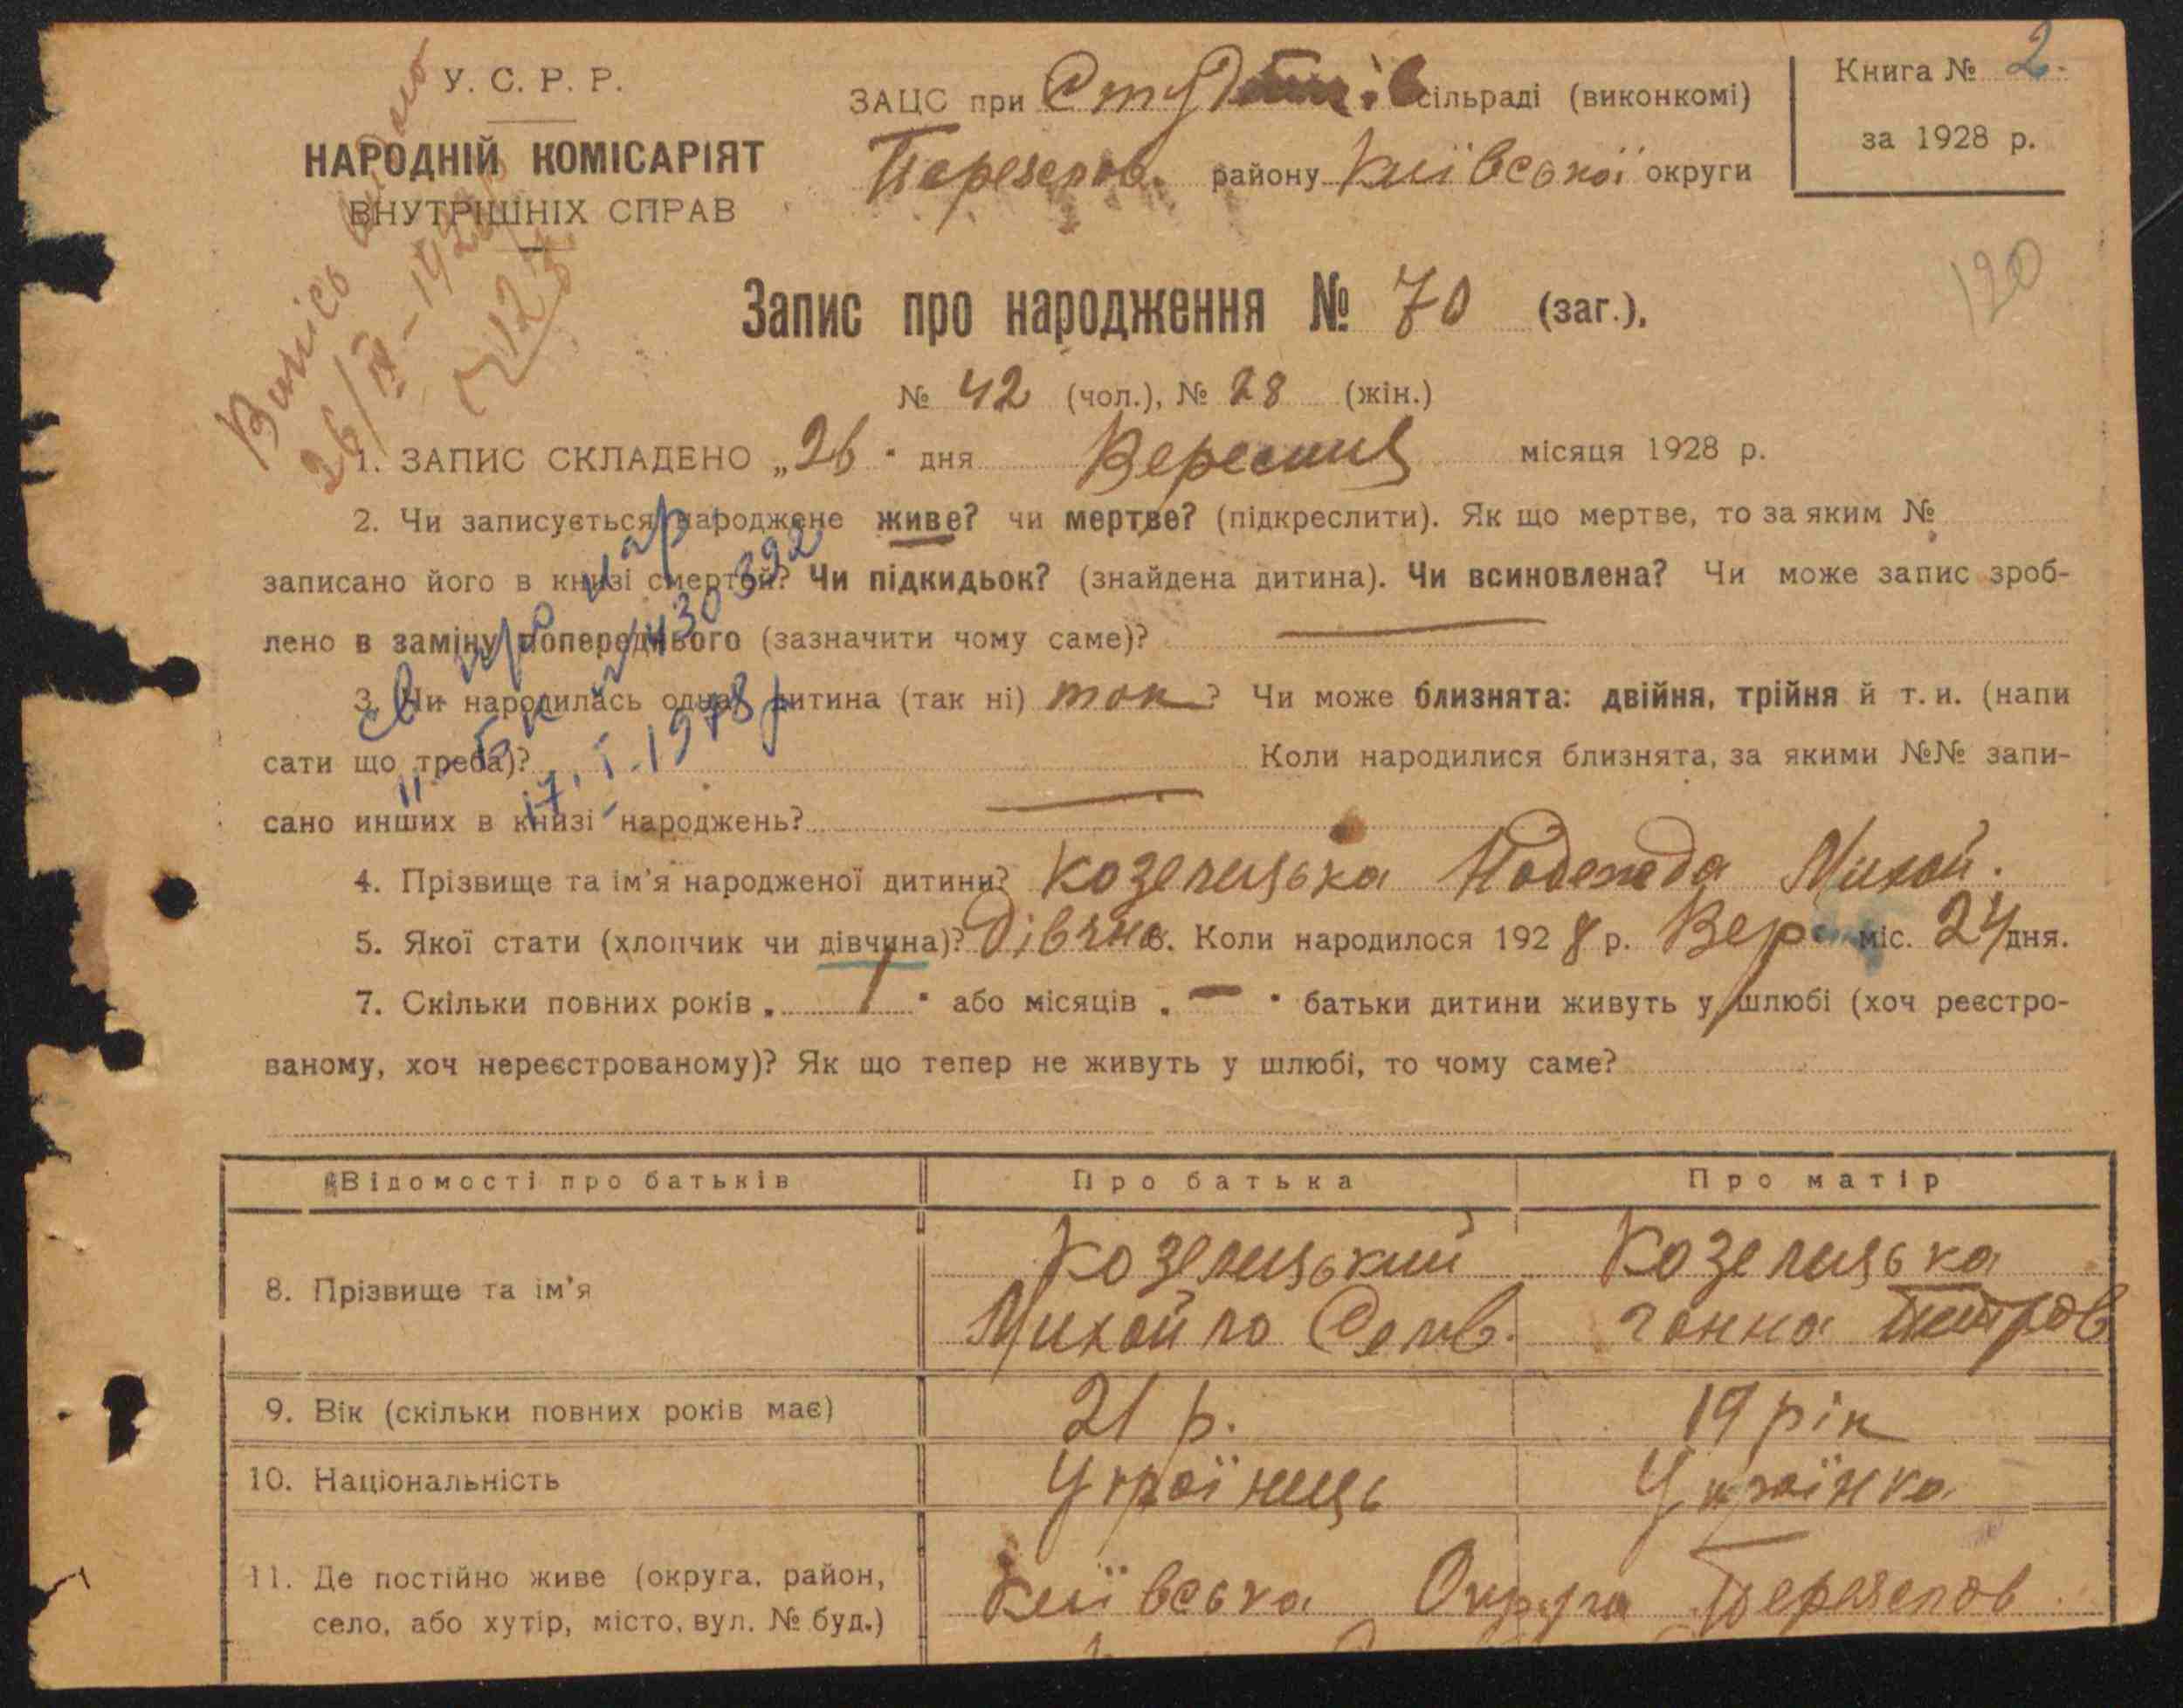 У. С. Р. Р.
НАРОДНІЙ КОМІСАРІЯТ
ВНУТРІШНІХ СПРАВ
ЗАЦС при сільраді (виконкомі)
району Київської округи
Книга № 2.
за 1928 р.
120
Випись видано
26/IX-1928
Запис про народження № 70 (заг.),
№ 42 (чол.), № 28 (жін.)
1. ЗАПИС СКЛАДЕНО „26" дня Вересния місяця 1928 р.
2. Чи записується народжене живе? чи мертве? (підкреслити). Як що мертве, то за яким №
записано його в книзі смертей? Чи підкидьок? (знайдена дитина). Чи всиновлена? Чи може запис зроб-
лено в заміну попереднього (зазначити чому саме)?
3. Чи народилась одна дитина (так ні) так? Чи може близнята: двійня, трійня й т. и. (напи
сати що треба)? Коли народилися близнята, за якими №№ запи-
сано инших в книзі народжень?
Св. про нар.
17. I. 1978 р
4. Прізвище та ім'я народженої дитини? Козелицька Надежда Михай.
5. Якої стати (хлопчик чи дівчина)? Дівчна 6. Коли народилося 1928 р. Вер. міс. 24 дня.
7. Скільки повних років „ 1 " або місяців „ — " батьки дитини живуть у шлюбі (хоч реєстро-
ваному, хоч нереєстрованому)? Як що тепер не живуть у шлюбі, то чому саме?
Відомості про батьків Про батька Про матір
8. Прізвище та ім'я
Козелицький Козелицька
Михайло Ганна Петров
9. Вік (скільки повних років має) 21 р. 19 рік
10. Національність Українець Українка
11. Де постійно живе (округа, район,
село, або хутір, місто, вул. № буд.)
Київська Округа